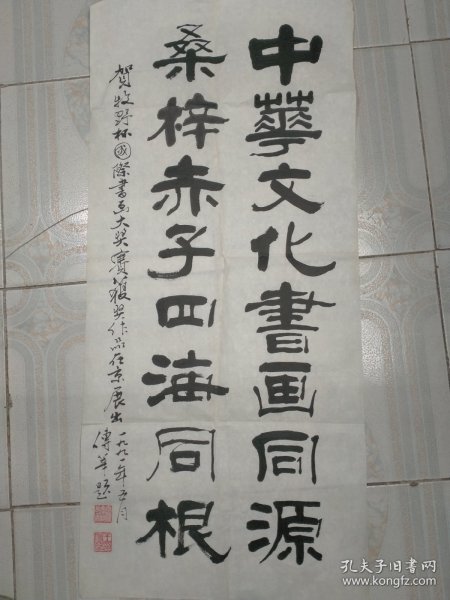 中華文化書画同源
桑梓赤子四海同根
賀牧野杯國際書画大奖賽獲奖作品在京展出
一九九一年五月
傅華題
孔夫子旧书网
www.kongfz.com